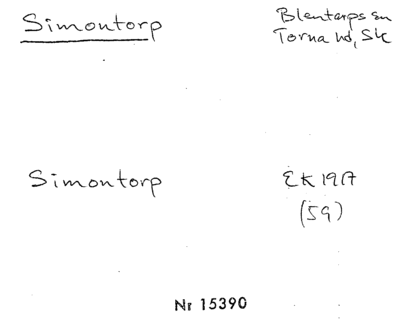 Simontorp
Blentarps sn
Torna hd, Sk
Simontorp
EK 1917
(59)
Nr 15390